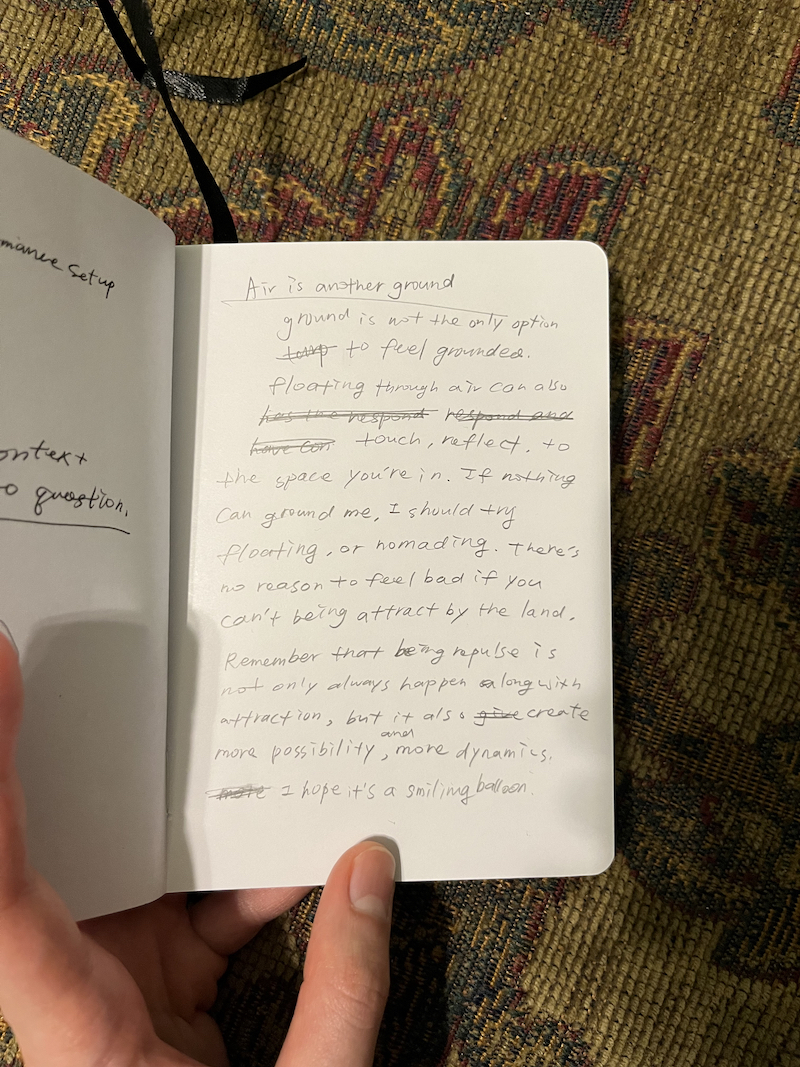 mance Setup
ontext
o question.
Air is another ground
ground is not the only option
to feel grounded.
floating through air can also
has the respond respond and
have con touch, reflect, to
the space you're in. If nothing
can ground me, I should try
floating, or nomading. There's
no reason to feel bad if you
can't being attract by the land.
Remember that being repulse is
not only always happen along with
attraction, but it also give create
more possibility, and more dynamics.
more I hope it's a smiling balloon.